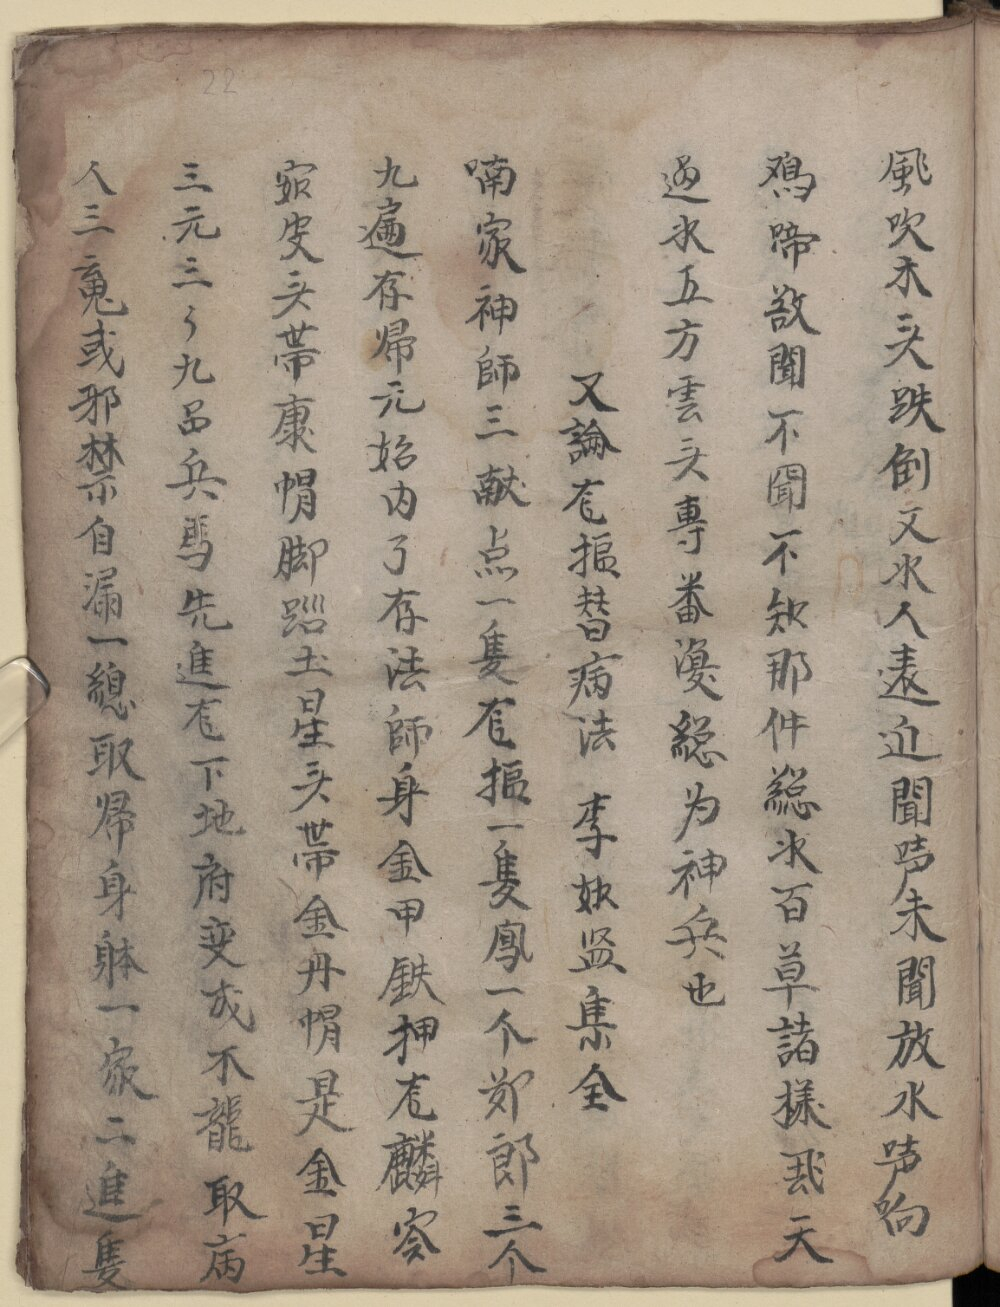 22
風吹木头跌倒文水人遠近聞声未聞放水声响
鳮啼敨聞不聞不知那件総氷百草諸樣飛天
过氷五方雲头專番漫総为神兵也
又論 摳替病法 李奻监集全
喃家神師三献点一隻 摳一隻鳳一个郊郎三个
九遍存帰元始内了存法師身金甲鉄押 麟
皮头帶康帽脚 土星头帶金丹帽是金星
三元三 九吕兵馬先進 下地府变成不龍取病
人三䰟或邪禁自漏一総取帰身躰一家二進隻